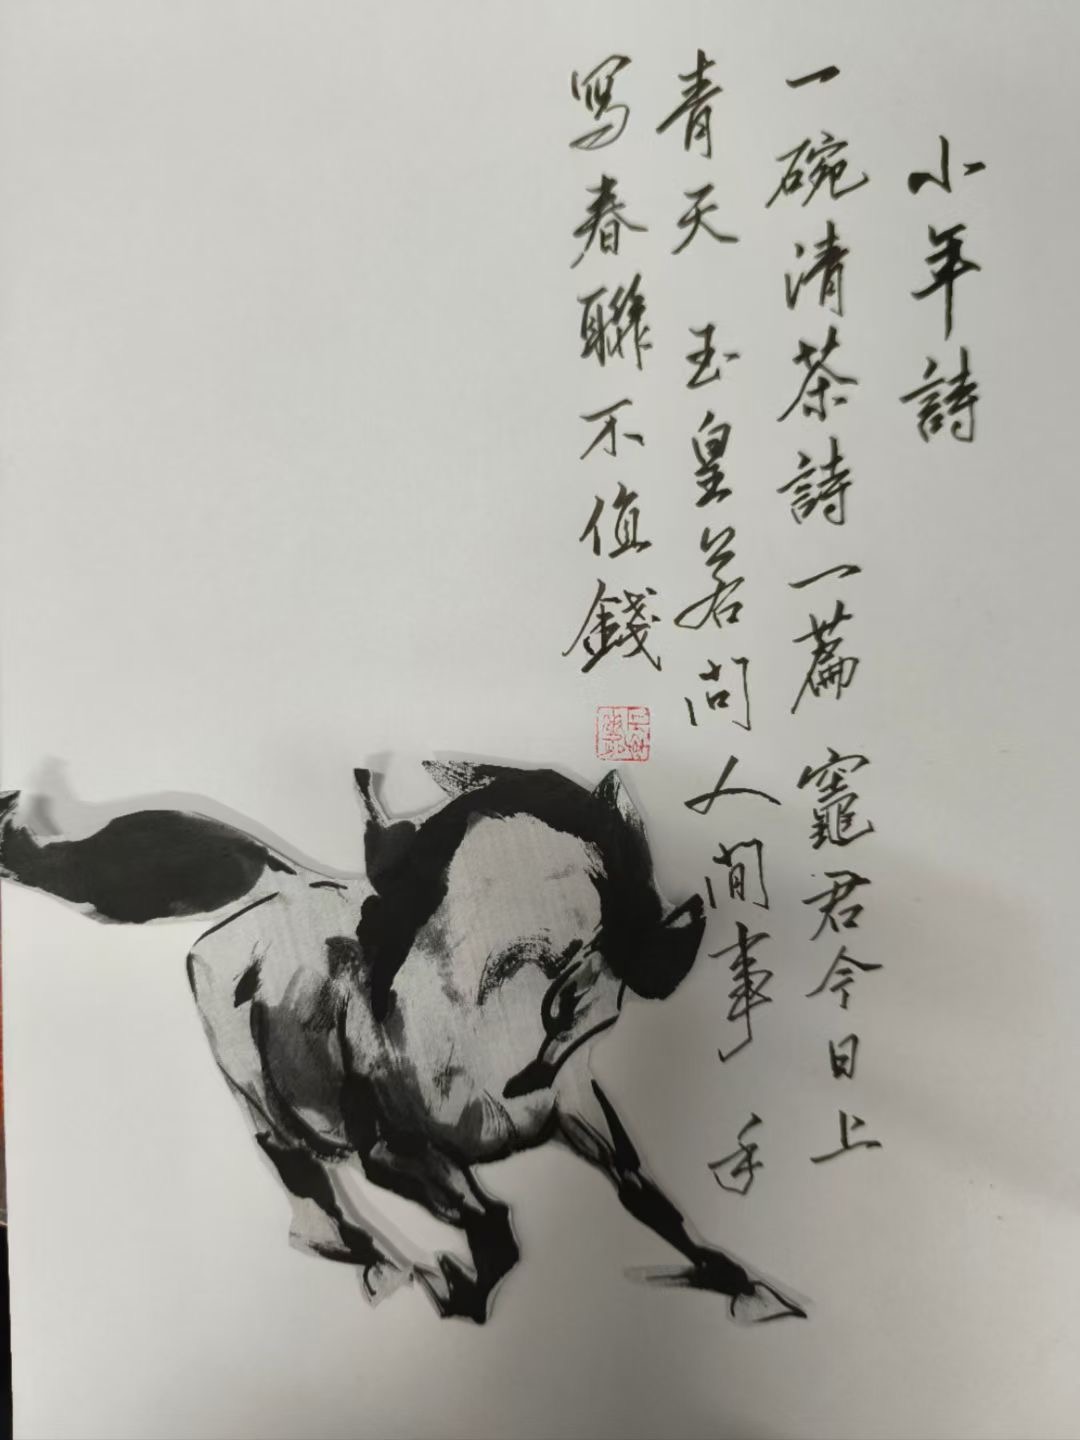 小年詩
一碗清茶詩一篇 竈君今日上
青天 玉皇若问人间事 手
寫春聯不值錢